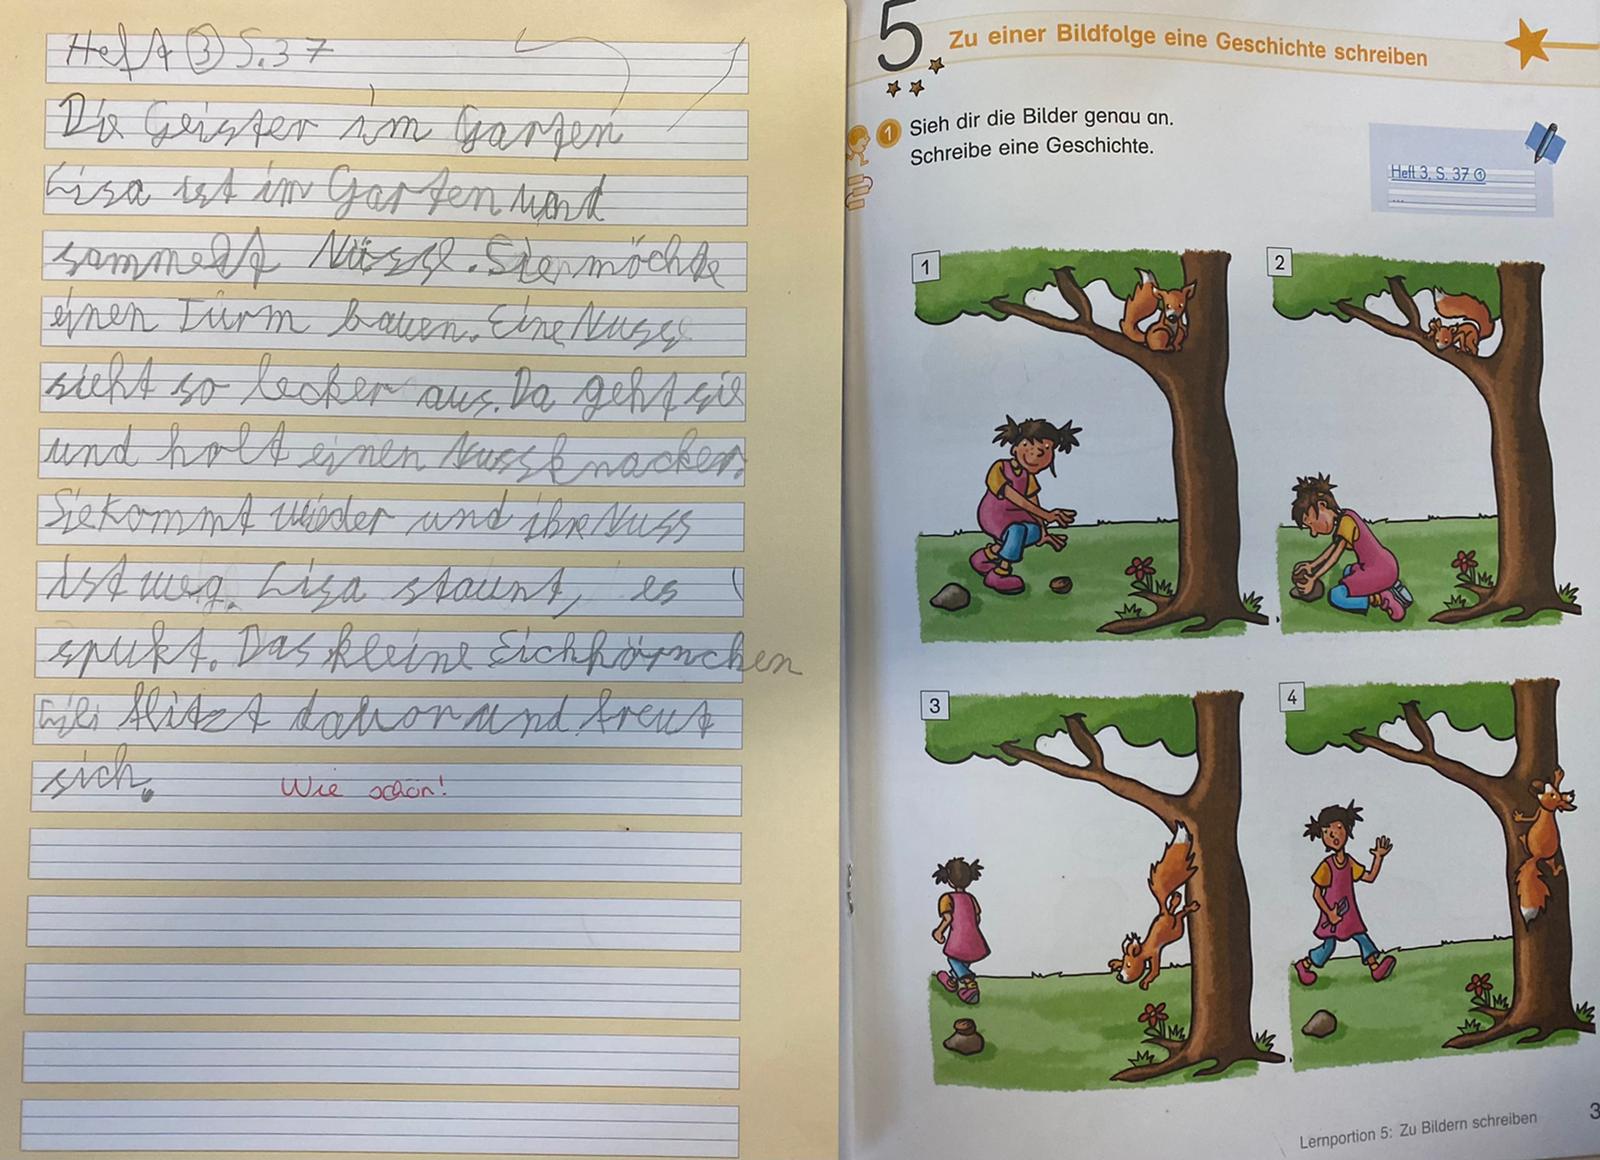 Heft ③ S. 37
Die Geister im Garten
Lisa ist im Garten und
sammelt Nüsse. Sie möchte
einen Turm bauen. Eine Nuss
sieht so lecker aus. Da geht sie
und holt einen Nussknacker.
Sie kommt wieder und ihre Nuss
ist weg. Lisa staunt, es
spukt. Das kleine Eichhörnchen
Lili flitzt davor und freut
sich.
Wie schön!
5
Zu einer Bildfolge eine Geschichte schreiben
1 Sieh dir die Bilder genau an.
Schreibe eine Geschichte.
Heft 3, S. 37 ①
...
1
2
3
4
Lernportion 5: Zu Bildern schreiben
3